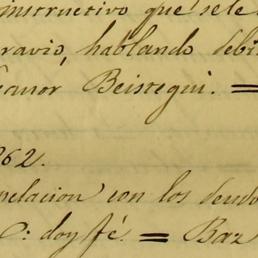 instructivo que se le
ravio, hablando debi
eanor Beistegui. =
862.
pelacion con los deudo
C: doy fé. = Baz